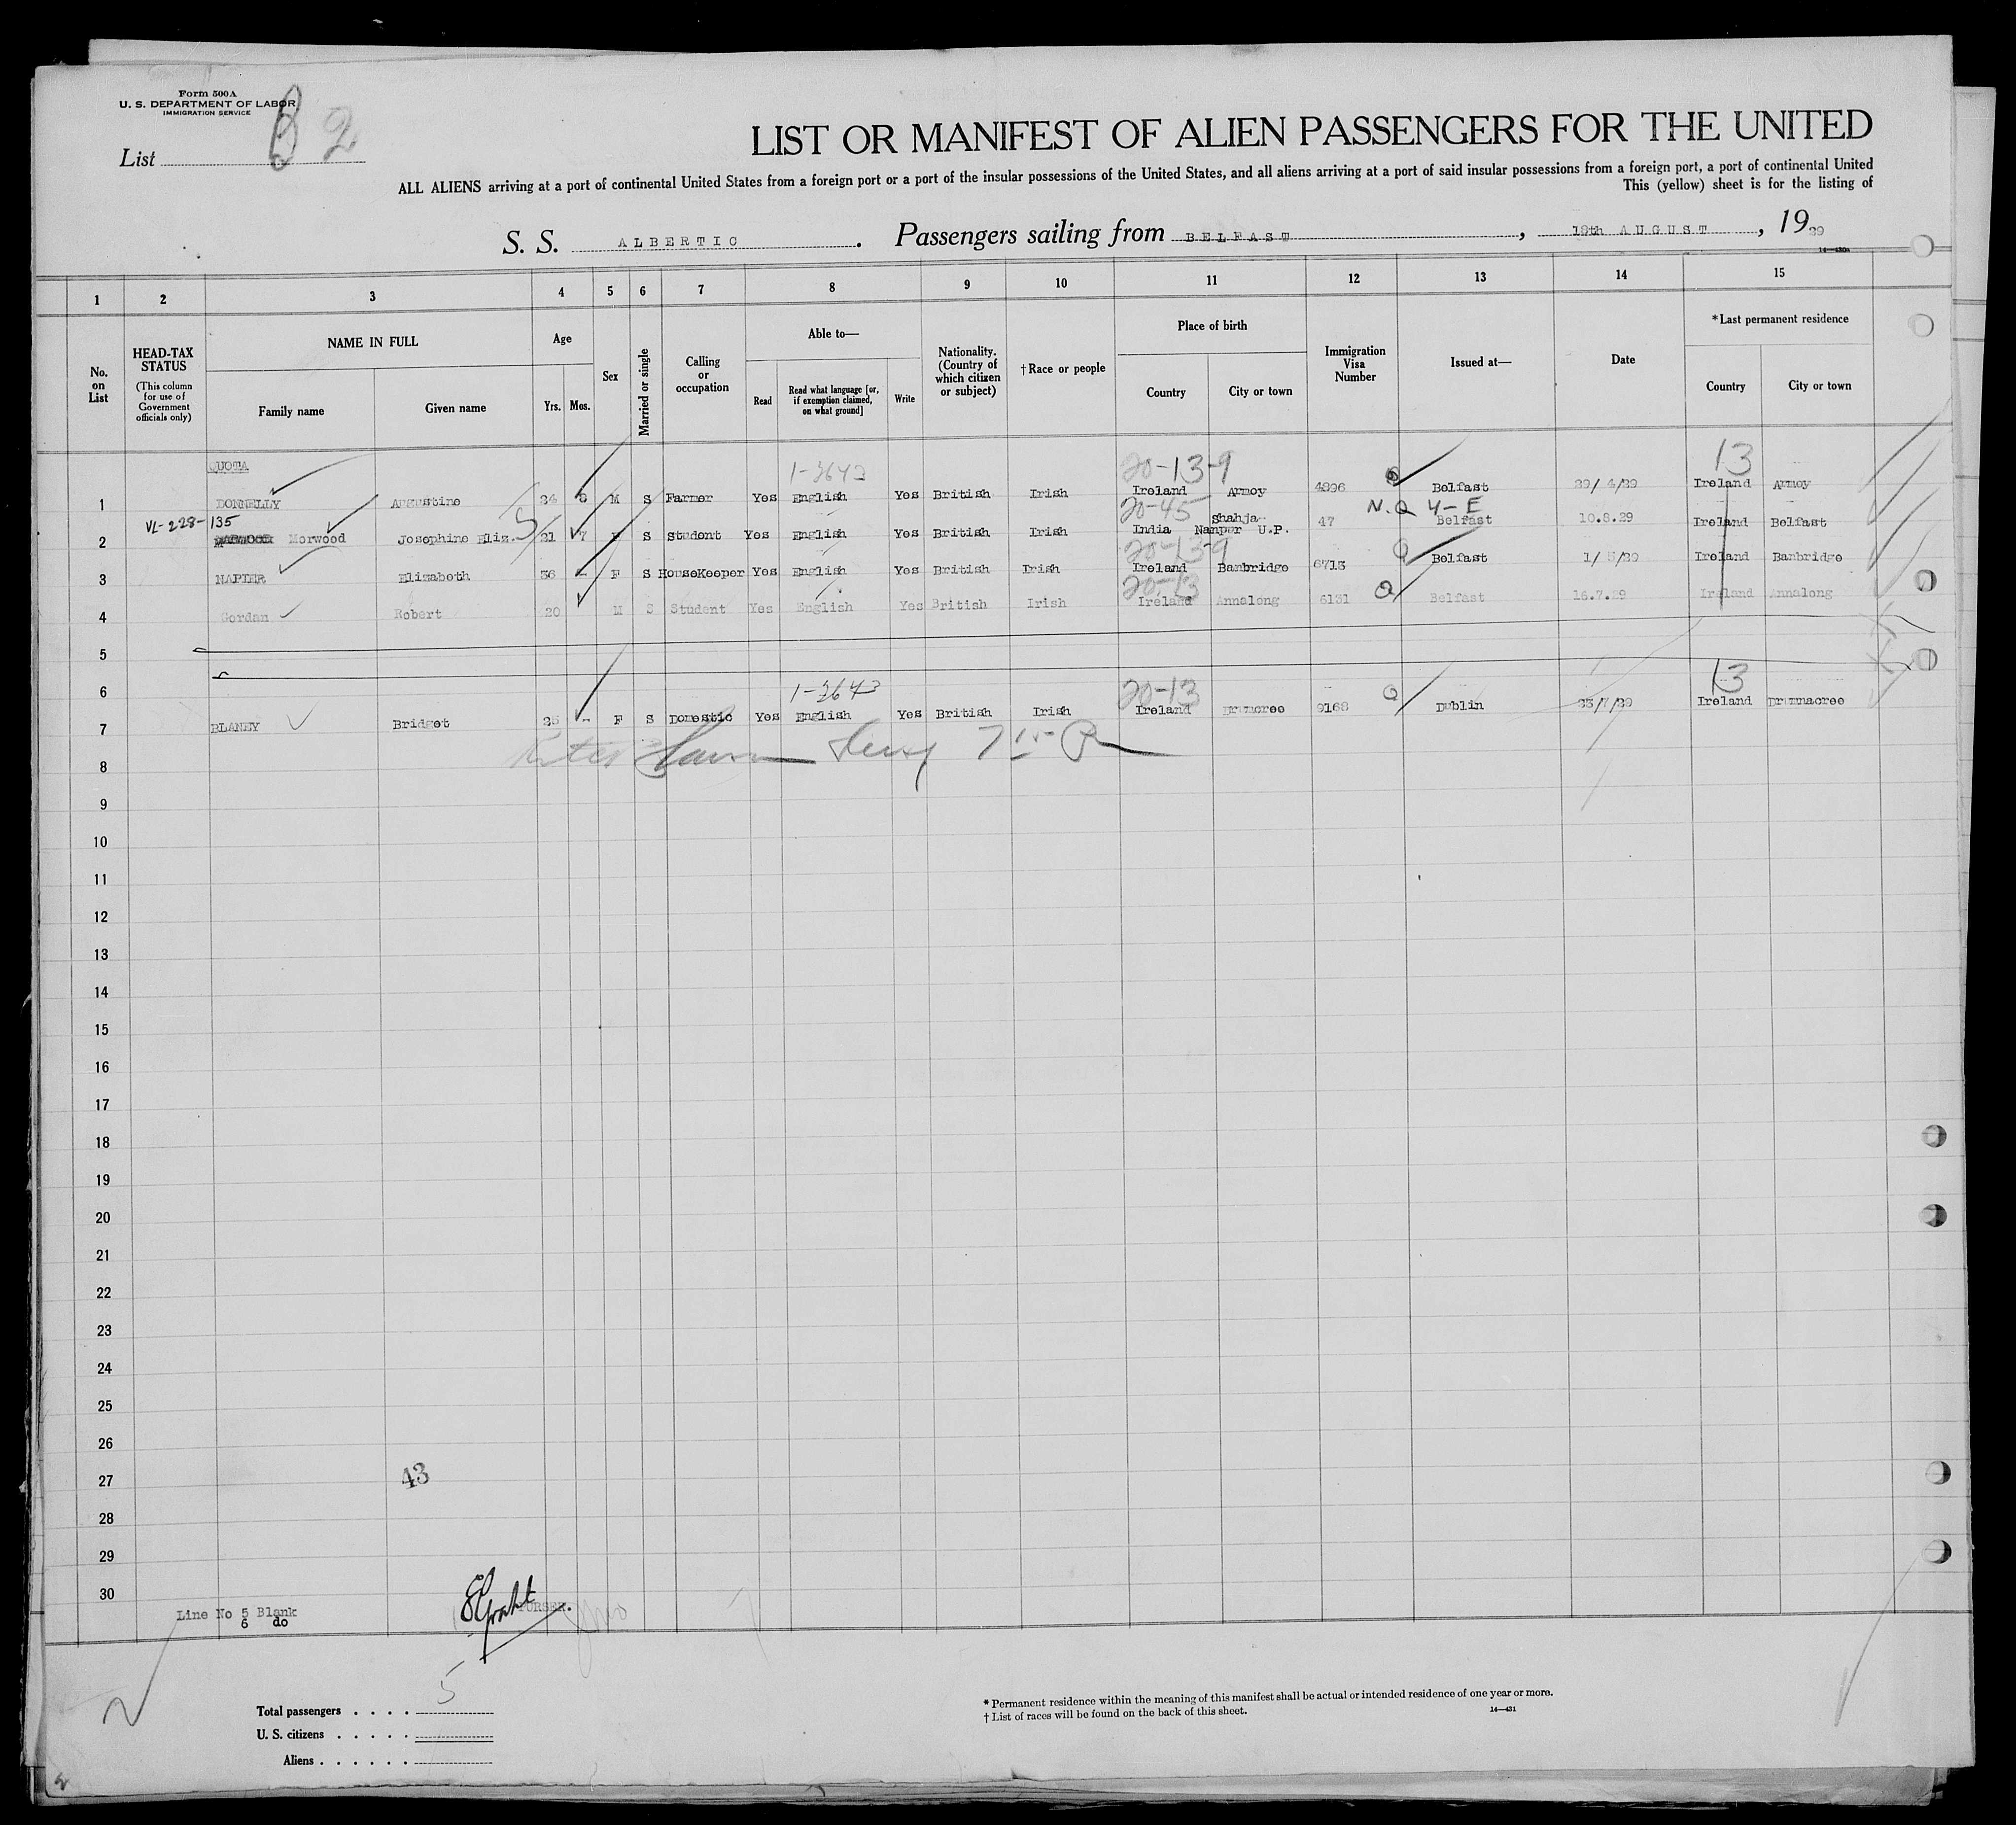 Form 500A
U. S. DEPARTMENT OF LABOR
IMMIGRATION SERVICE
List 2
LIST OR MANIFEST OF ALIEN PASSENGERS FOR THE UNITED
ALL ALIENS arriving at a port of continental United States from a foreign port or a port of the insular possessions of the United States, and all aliens arriving at a port of said insular possessions from a foreign port, a port of continental United
This (yellow) sheet is for the listing of
S. S. ALBERTIC. Passengers sailing from BELFAST, 19th AUGUST, 19
1 2 3 4 5 6 7 8 9 10 11 12 13 14 15
No. on List
HEAD-TAX STATUS (This column for use of Government officials only)
NAME IN FULL
Family name Given name
Age
Yrs. Mos.
Sex
Married or single
Calling or occupation
Able to—
Read Read what language [or, if exemption claimed, on what ground] Write
Nationality. (Country of which citizen or subject)
†Race or people
Place of birth
Country City or town
Immigration Visa Number
Issued at—
Date
*Last permanent residence
Country City or town
QUOTA 20-13-9 13
1 DONNELLY Augustine M S Farmer Yes English Yes British Irish Ireland Armoy Belfast Ireland Armoy
VL-228-135 20-45 N.Q 4-E
2 Morwood Josephine Eliz. 21 7 F S Student Yes English Yes British Irish India Shahja Nanpur U.P. 47 Belfast 10.8.29 Ireland Belfast
20-13-9 Q
3 NAPIER Elizabeth 36 F S HouseKeeper Yes English Yes British Irish Ireland Banbridge 6713 Belfast Ireland Banbridge
20-13 Q
4 Gordan Robert 20 M S Student Yes English Yes British Irish Ireland Annalong 6131 Belfast 16.7.29 Ireland Annalong
5
6 1-3643 20-13 Q 13
7 BLANEY Bridget F S Domestic Yes English Yes British Irish Ireland Drumcree 9168 Dublin Ireland Drumnacree
8
9
10
11
12
13
14
15
16
17
18
19
20
21
22
23
24
25
26
27 43
28
29
30
Line No 5 Blank
6 do
PURSER.
Total passengers . . . . 5
U. S. citizens . . . . .
Aliens . . . . . .
* Permanent residence within the meaning of this manifest shall be actual or intended residence of one year or more.
† List of races will be found on the back of this sheet.
14—431